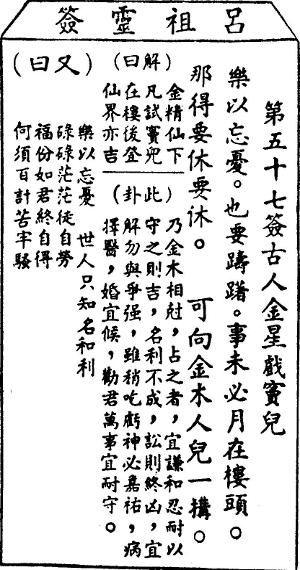 呂祖靈簽
第五十七簽古人金星戲竇兒
樂以忘憂。也要躊躇。事未必月在樓頭。
那得要休要休。可向金木人兒一搆。
(解曰)
金精仙下
凡試竇兒
在樓後登
仙界亦吉
(此卦)
乃金木相尅,占之者,宜謙和忍耐以
守之則吉,名利不成,訟則終凶,宜
解勿與爭强,雖稍吃虧神必嘉祐,病
擇醫,婚宜候,勸君萬事宜耐守。
(又曰)
樂以忘憂 世人只知名和利
碌碌茫茫徒自勞
福份如君終自得
何須百計苦牢騷